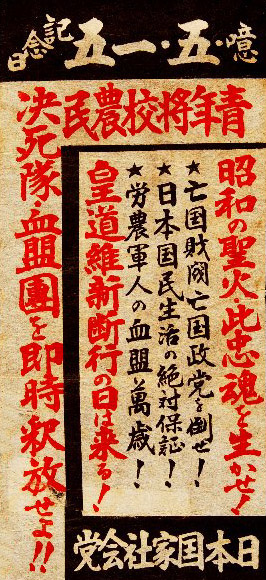 噫・五・一五
記念日
青年将校農民
决死隊・血盟團を即時釈放せよ!!
昭和の聖火・此忠魂を生かせ!
★亡国財閥亡国政党を倒せ!
★日本国民生活の絶対保証!
★労農軍人の血盟萬歳!
皇道維新断行の日は来る!
日本国家社会党